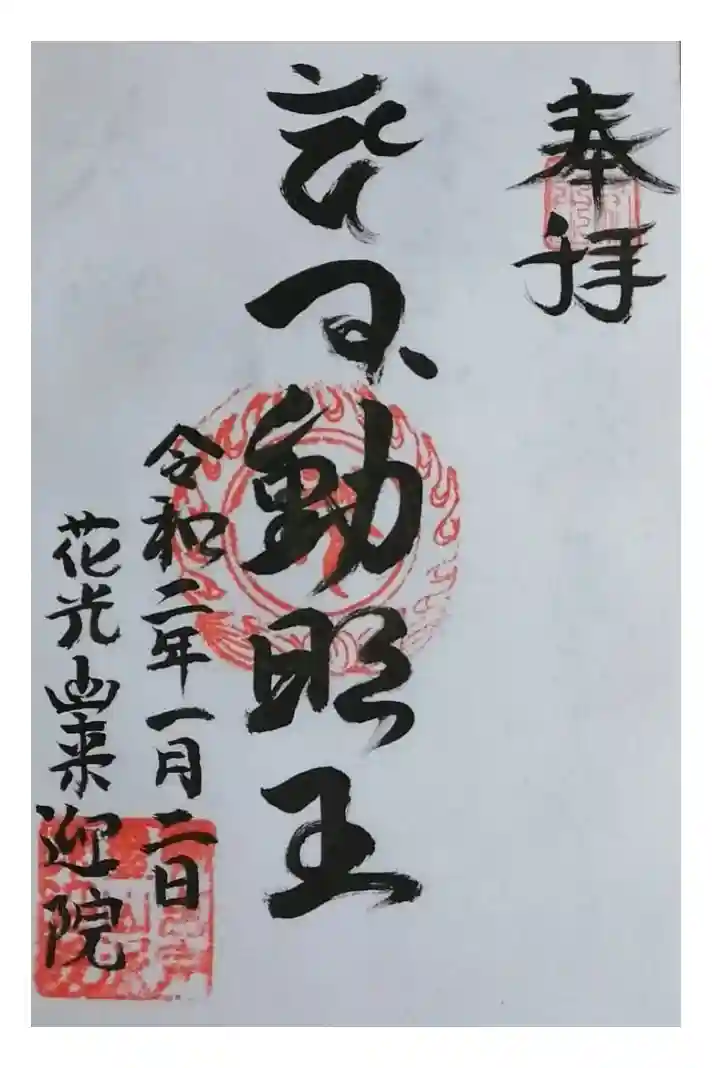 奉拝
不動明王
令和二年一月二日
花光山来迎院